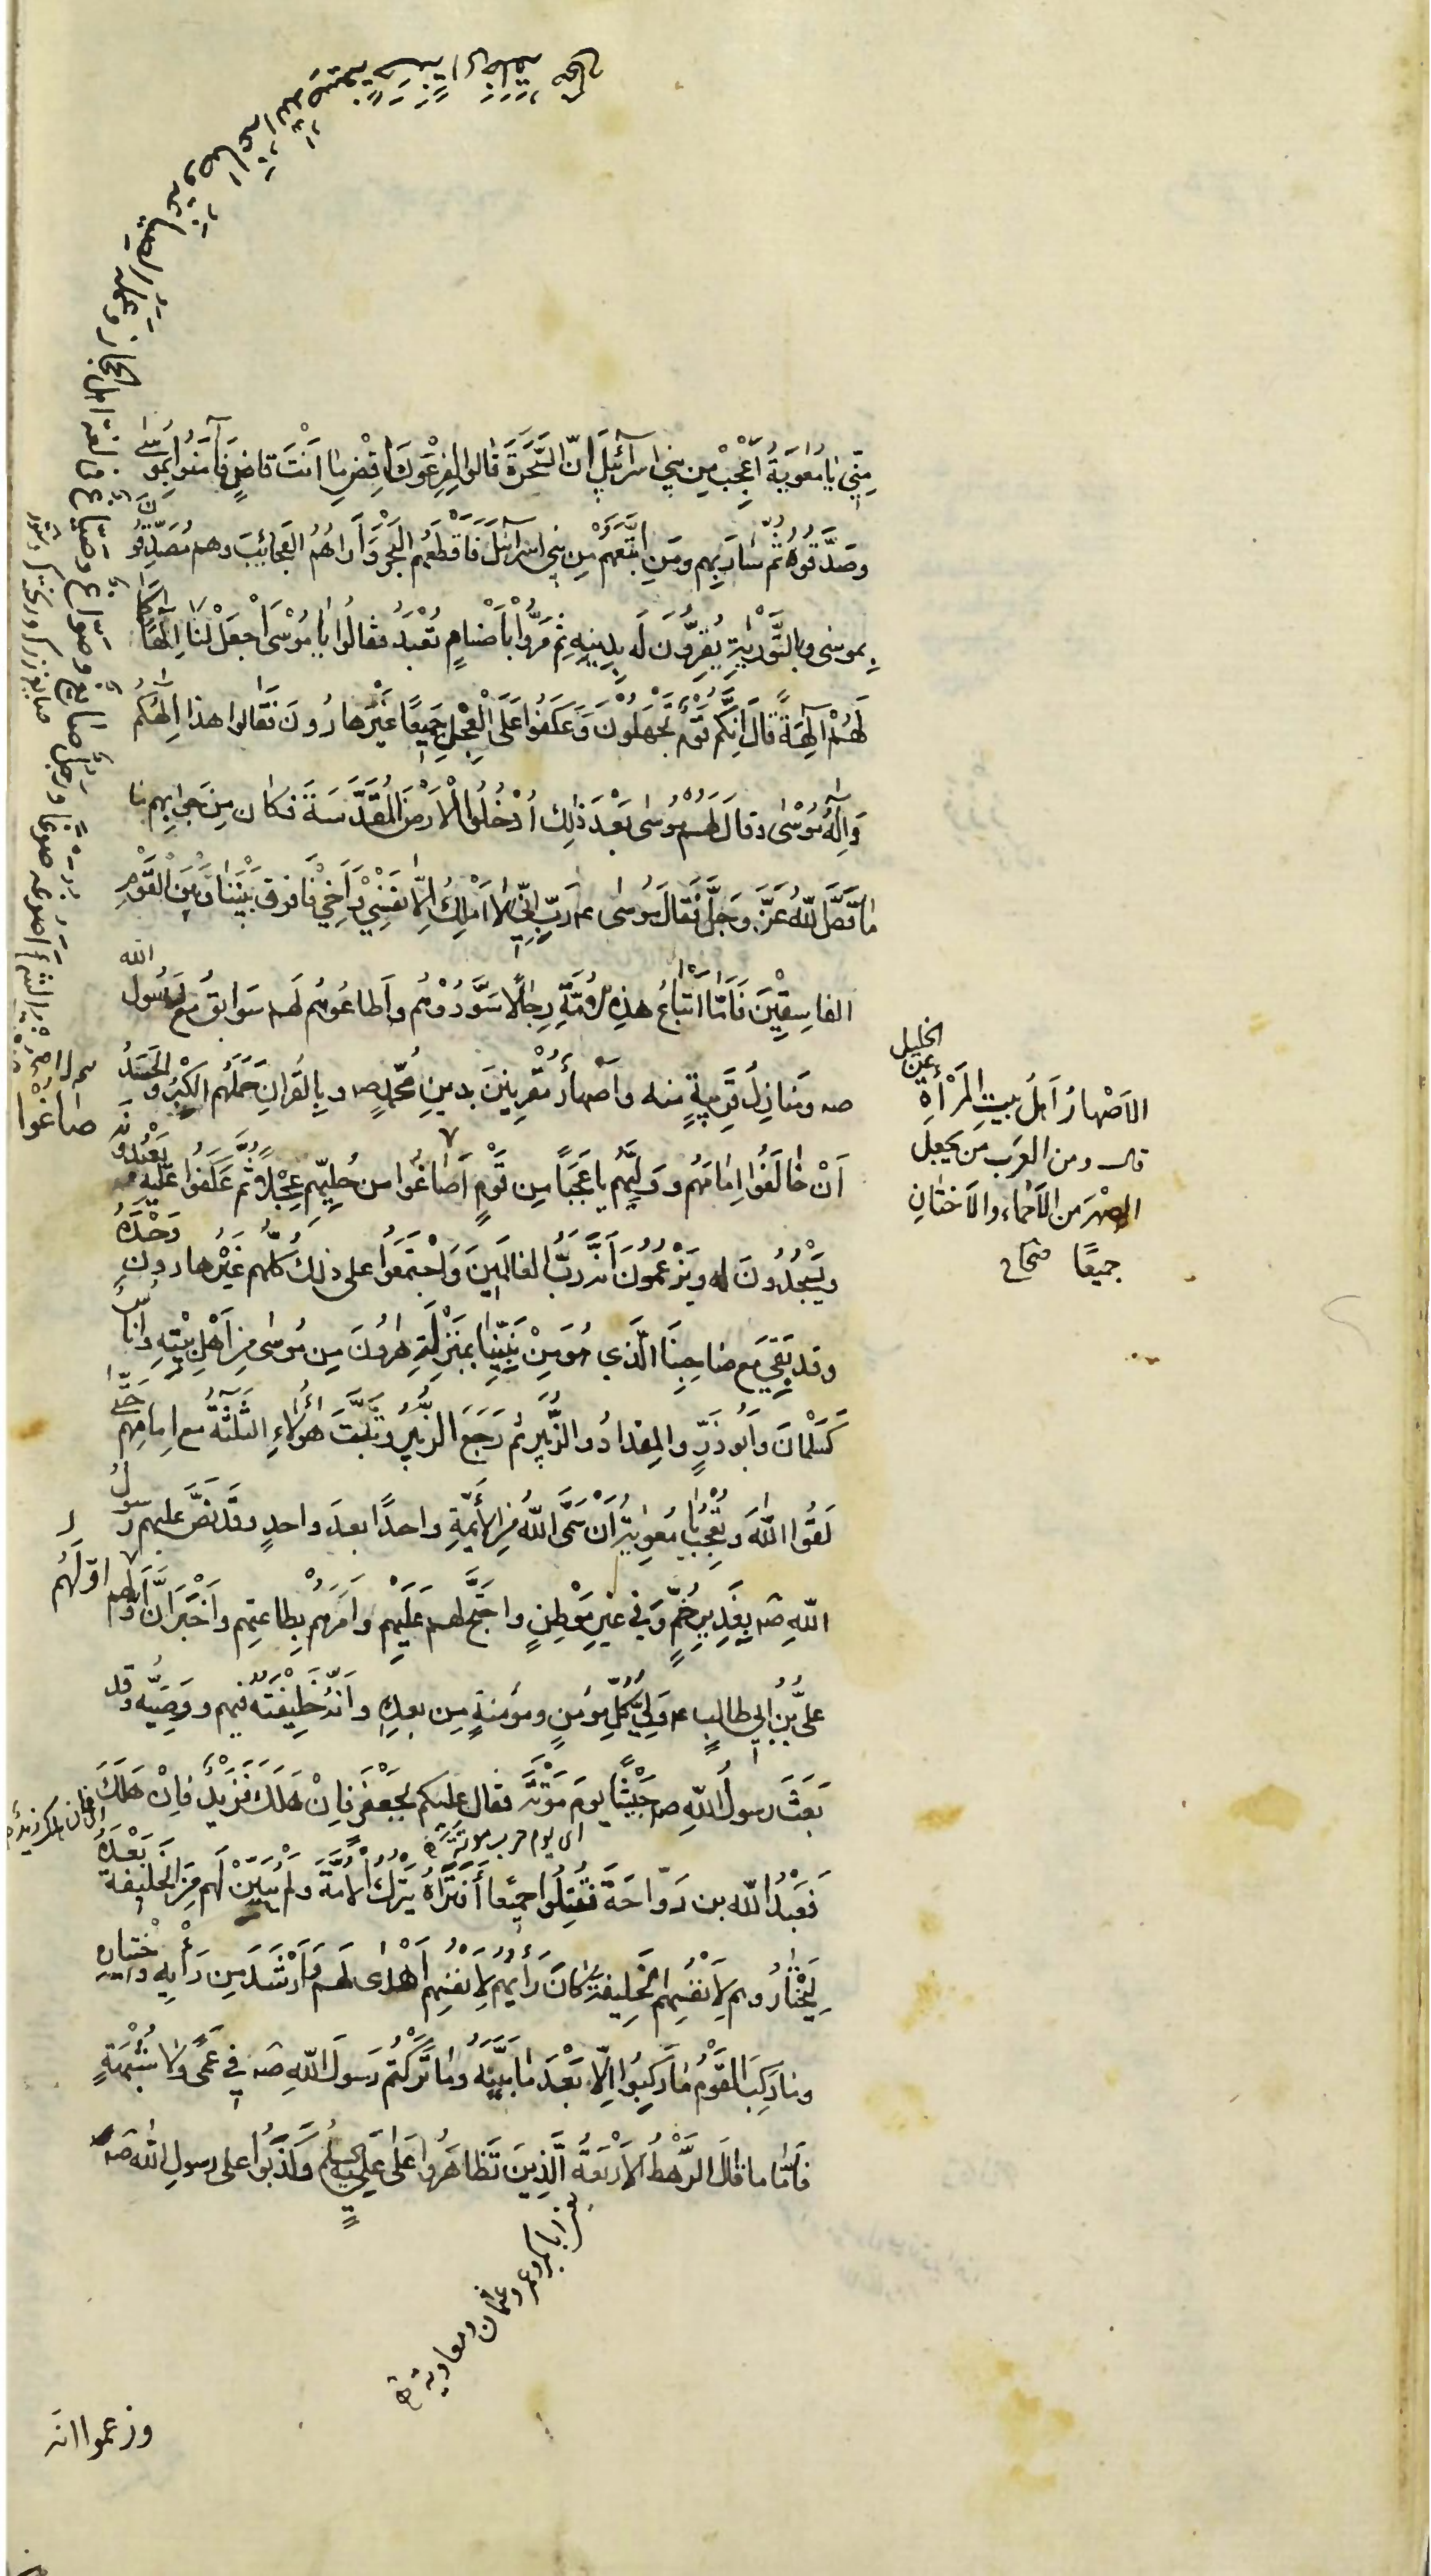 مِنِّي يَا مُعَوِيَةُ أَعْجَبُ مِن بَنِي اسرآئِيلَ اِنَّ السَّحَرَةَ قَالُوا لِفِرْعَوْنَ اقْضِ مَا اَنْتَ قاضٍ فَآمَنُوا بِمُوسٰى
وصَدَّقُوهُ ثُمَّ سَارَ بِهِم ومَنِ اتَّبَعَهُمْ مِن بَنِي اسرآئيلَ فَاَقْطَعَهُم الْبَحْرَ وَاَراهُمُ العَجَائِبَ وهم مُصَدِّقُونَ
بِموسٰى وبِالتَّوْرٰيةِ يُقِرُّونَ لَه بِدِينِهِ ثم مَرُّوا بِاَصْنامٍ تُعْبَدُ فقالُوا يا مُوسٰى اجْعَلْ لَنَا اِلٰهًا كَمَا
لَهُمْ آلِهَةٌ قَالَ اِنَّكُم قَوْمٌ تَجْهَلُونَ وَعَكَفُوا عَلَى الْعِجْلِ جَمِيعًا غَيْرَ هارُونَ فَقَالوا هذا اِلٰهُكُمْ
وَاِلٰهُ مُوسٰى وقالَ لَهُمْ مُوسٰى بَعْدَ ذٰلِك اُدْخُلُوا الْاَرْضَ الْمُقَدَّسَةَ فكان مِن جَوابِهِم مَا
مَا قَصَّ اللّٰهُ عَزَّ وَجَلَّ فَقَالَ مُوسٰى ع رَبِّ اِنِّي لا اَمْلِكُ اِلَّا نَفْسِي وَاَخِي فَافرق بَيْنَنَا وبَيْنَ الْقَوْمِ
الفاسِقِينَ فَاَمَّا اتِّبَاعُ هذِهِ الْاُمَّةِ رِجالًا سَوَّدُوْهُم واَطاعُوهُم لَهم سَوَابِقُ مَعَ رَسُول الله
صه ومَنازِلُ قَرِيبةٌ منه واَصْهارٌ مُقِرِّينَ بِدينِ مُحَمَّدٍ صه وبِالقرانِ حَمَلَهُم الكِبْرُ والْحَسَدُ
اَنْ خالَفُوا اِمامَهُم ووَلِيَّهُم يا عَجَبًا مِن قَوْمٍ اَصَاغُوا من حُلِيِّهِم عِجْلًا ثُمَّ عَكَفُوا عَلَيْه يَعْبُدُونَه
ويَسْجُدُونَ له ويَزْعُمُونَ اَنَّه رَبُّ العالَمِينَ وَاجْتَمَعُوا على ذلِكَ كُلُّهم غَيْرَ هارونَ وَحْدَهُ
وقد بَقِيَ مع صَاحِبِنَا الَّذِي هُوَ مِنْ نَبِيِّنا بِمَنْزِلَةِ هٰرُونَ مِن مُوسٰى مِن اَهْلِ بَيْتِهِ واُناسٌ
كَسَلْمانَ وَاَبُو ذَرٍّ والمِقدادُ والزُّبَيْرِ ثم رَجَعَ الزُّبَيْرُ وثَبَتَ هٰؤُلاءِ الثلٰثةُ مع اِمامِهِم حَتَّى
لَقُوا اللّٰهَ وتَعْجَبُ يا مُعٰوِيةُ اَنْ سَمَّى اللّٰهُ مِنَ الْاَئِمَّةِ واحدًا بعدَ واحدٍ وقَد نَصَّ عليهم رَسولُ
اللهِ صه بِغَدِيرِ خُمٍّ وَفي غيرِ مَوْطِنٍ واحْتَجَّ لهم عَلَيهِمْ واَمَرَهُمْ بِطاعتِهِم واَخْبَرَ اَنَّ اَوَّلَهُم
علىُّ بْنُ اَبي طالبٍ ع وَلِيُّ كُلِّ مؤمنٍ ومؤمنةٍ من بعدِه واَنَّهُ خَلِيْفَتُهُ فيهم ووَصِيُّه وَقد
بَعَثَ رسولُ اللهِ صه جَيْشًا يومَ مَوْتَةَ فقالَ عليكم بجَعْفَر فَاِنْ هَلَكَ فَزَيْدٌ فَاِنْ هَلَكَ
اى يوم حرب موتة
فَعَبْدُ اللّه بن رَوَاحَةَ فقُتِلُوا جَمِيعًا اَفَتَراهُ يَتْرُكُ الْاُمَّةَ ولَمْ يُبَيِّنْ لَهم مَنِ الخَلِيْفَةُ بَعْدَهُ
لِيَخْتارُوا هم لِاَنْفُسِهِم الخَلِيفةَ كانَ رَأْيُهُم لِاَنفُسِهِم اَهْدٰى لَهم واَرْشَدَ مِن رَاْيِه واخْتِيارِه
ومَا رَكِبَ القَوْمُ مَا رَكِبُوا اِلَّا بَعْدَ مَا بَيَّنَهُ وما تَرَكَهُمْ رَسولُ اللهِ صه في عَمًى ولا شُبْهَةٍ
فَاَمَّا ما قالَ الرَّهْطُ الْاَرْبَعَةُ الَّذِينَ تَظَاهَرُوا عَلٰى عَلِيٍّ وكَذَبُوا على رسولِ اللهِ صه
يعنى ابابكر وعمر وعثمان ومعاوية
وزعموا انه
الخليل عن
الاَصْهارُ اَهْلُ بيتِ الْمَرْأَةِ
قال ومن العَرَب مَن يَجعلُ
الصِهْرَ من الاَحْماءِ والاَختانِ
جميعًا صحاح
اَوَّلَهُم
صَاغُوا